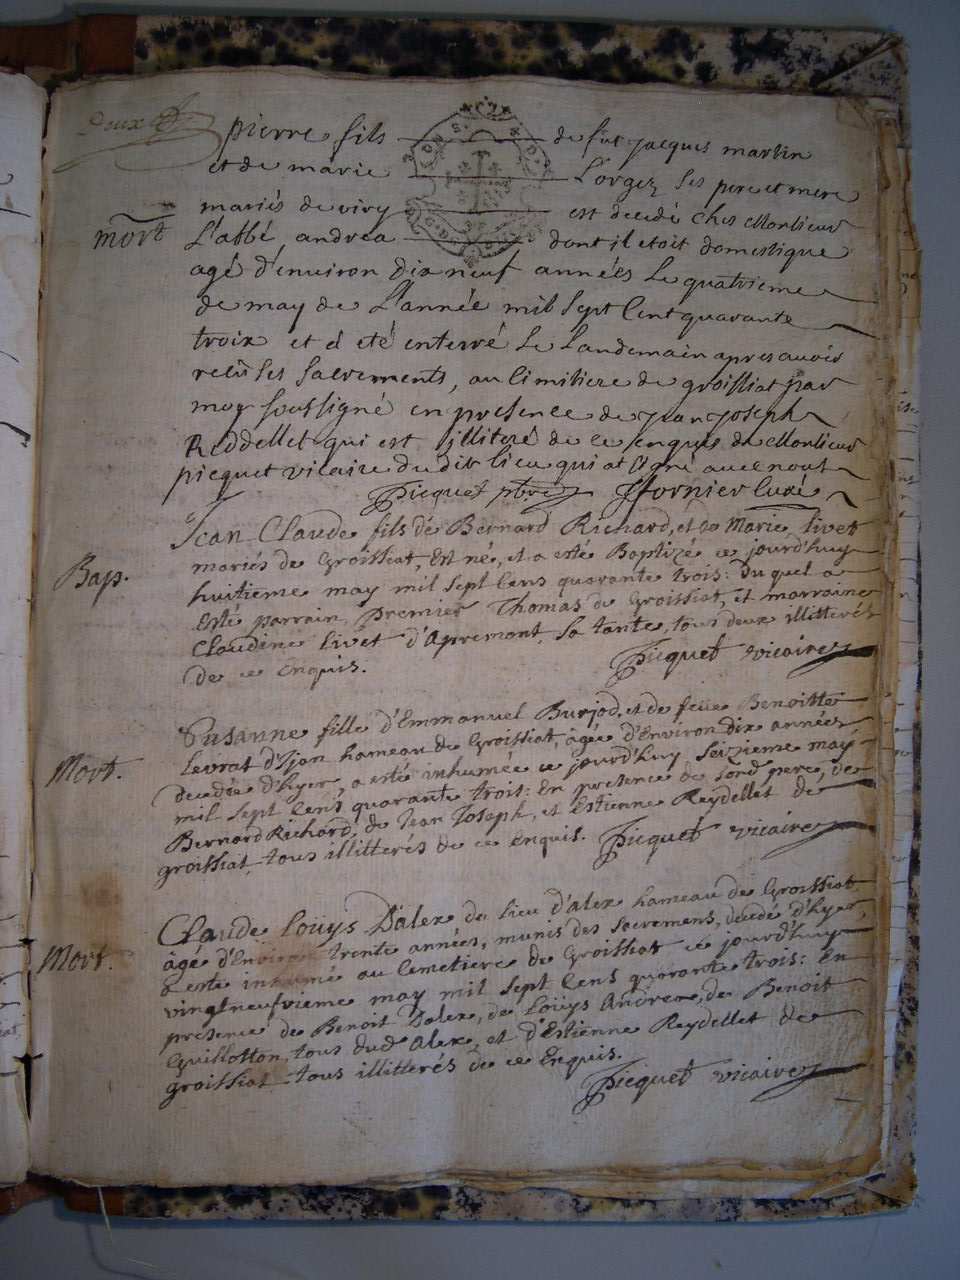 Deux
pierre fils de fut jacques martin
et de marie Lorgez ses pere et mere
mariés de viry est decedé ches Monsieur
mort
L'abbé, andréa dont il etoit domestique
agé d'environ dix neuf années Le quatrieme
de may de L'année mil sept Cent quarante
troix et a été enterré Le Landemain apres avoir
reçu ses sacrements, au Cimitiere de groissiat par
moy soussigné en presence de jean joseph
Reddellet qui est illiteré de ce enquis de Monsieur
picquet vicaire dudit lieu qui at signé avec nous
Picquet ptre ffornier curé
Jean Claude fils de Bernard Richard, et de Marie livet
Bap.
mariés de Groissiat, est né, et a esté Baptizé ce jourd'huy
huitieme may mil sept Cens quarante trois: Duquel a
esté parrain Premier Thomas de Groissiat, et marraine
Claudine livet d'Apremont, sa tante, tous deux illitterés
de ce enquis. Picquet vicaire
Susanne fille d'Emmanuel Burjod, et de feüe Benoitte
Mort.
Levrat d'Ijan hameau de Groissiat, âgée d'Environ dix années,
decedée d'hyer, a esté inhumée ce jourd'huy seizieme may
mil sept Cens quarante trois: En presence de sond. pere, de
Bernard Richard, de Jean Joseph, et Estienne Reydellet de
groissiat, tous illitterés de ce enquis. Picquet vicaire
Claude Loüys Dalex du lieu d'alex hameau de Groissiat
Mort.
âgé d'Environ trente années, munis des sacremens, decedé d'hyer,
a esté inhumé au Cemetiere de Groissiat ce jourd'huy
vingtneufvieme may mil sept Cens quarante trois: En
presence de Benoit Dalex, de Loüys Andrea, de Benoit
Guillotton, tous dud. Alex, et d'Estienne Reydellet de
groissiat tous illitterés de ce Enquis.
Picquet vicaire